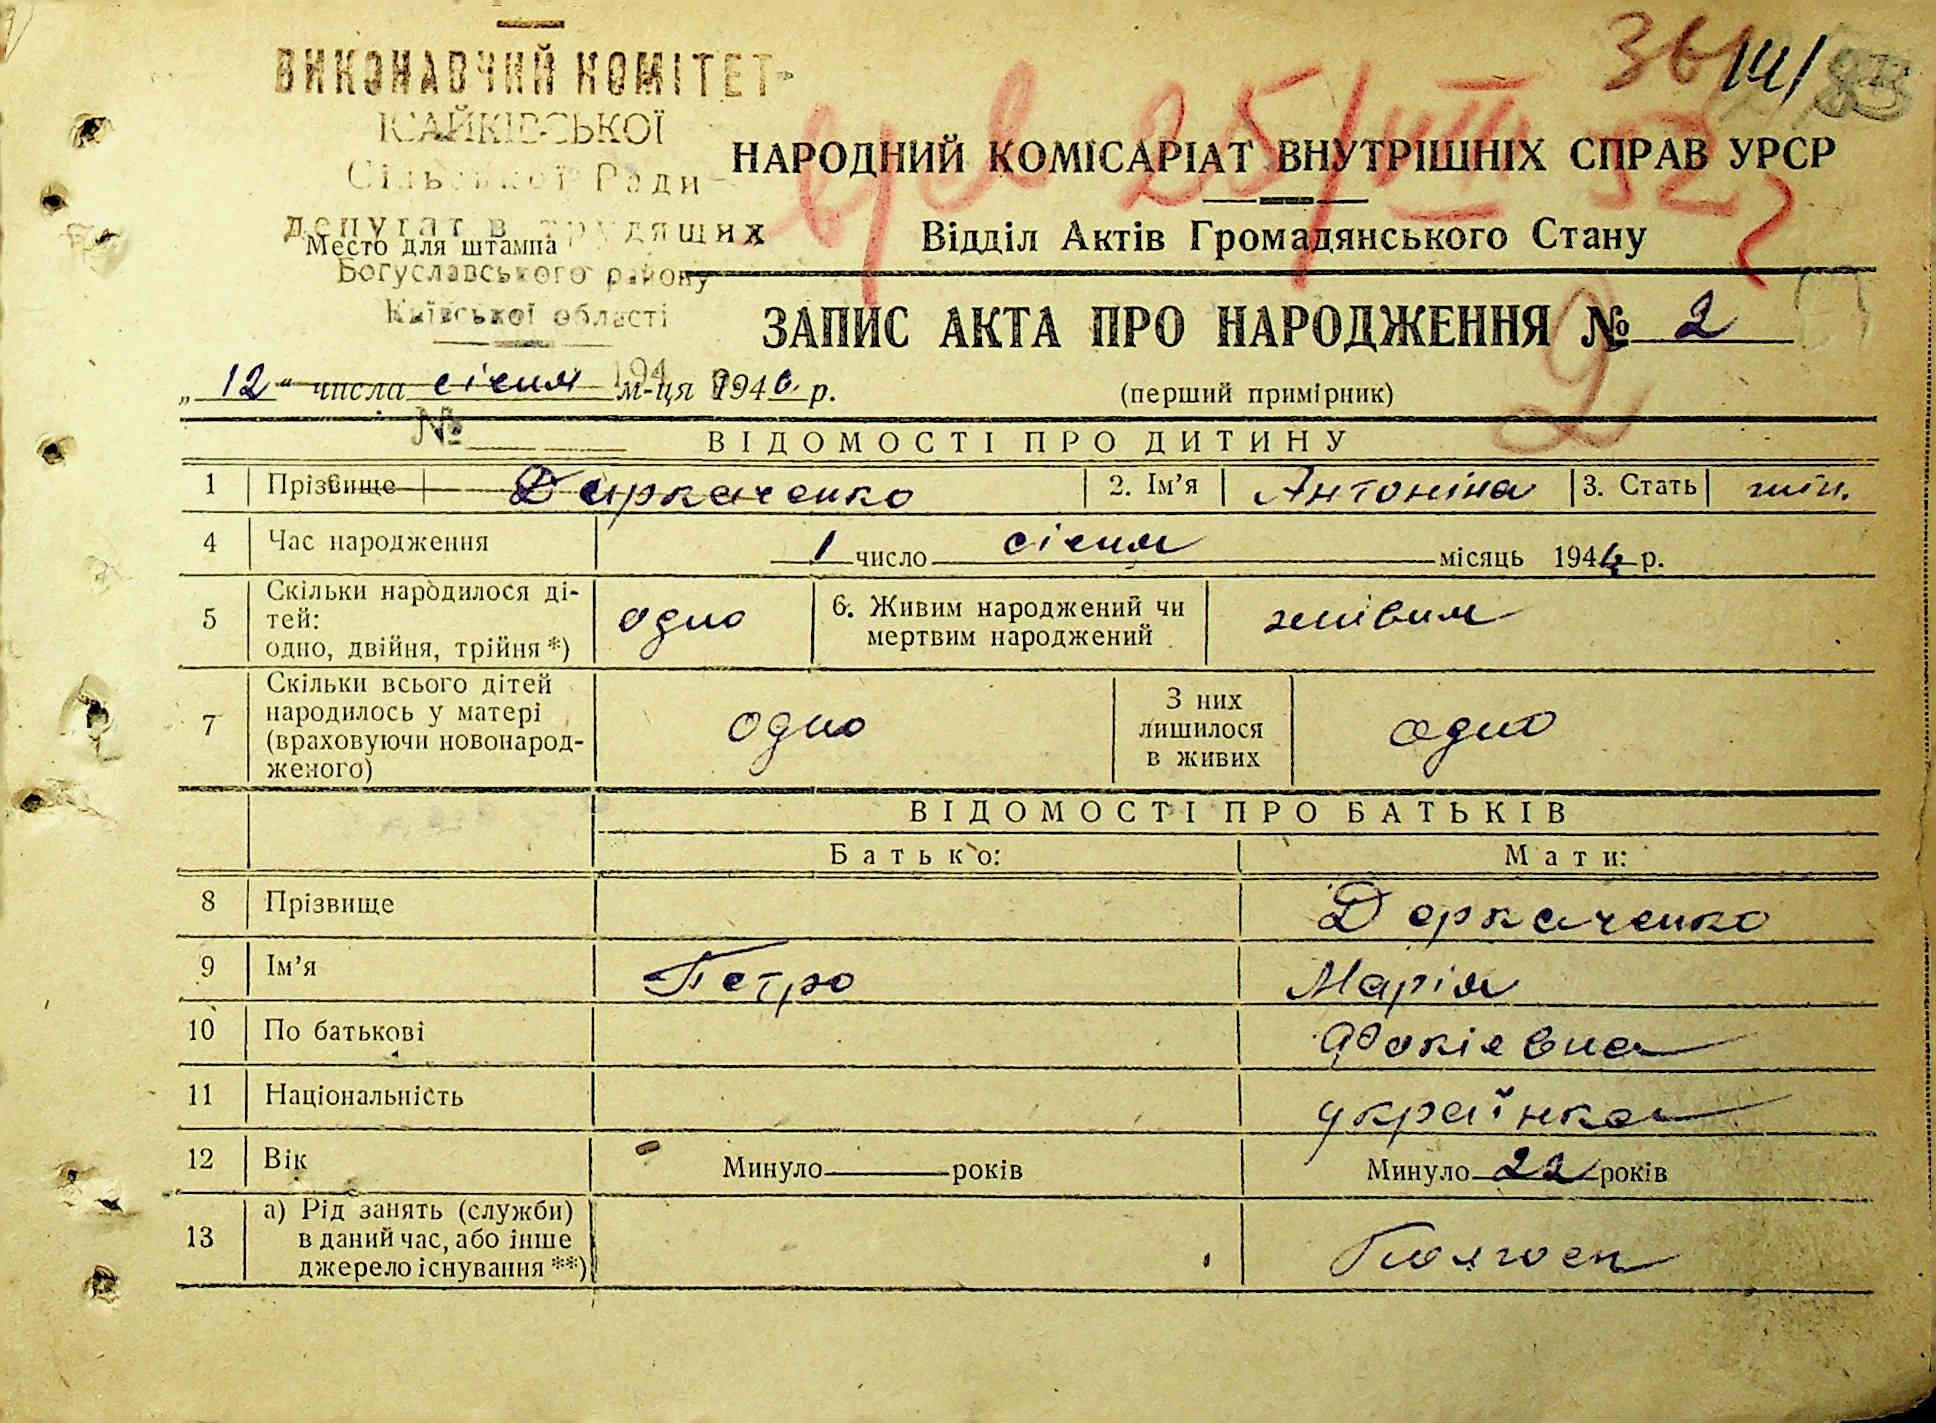 36 14/
ВИКОНАВЧИЙ КОМІТЕТ
ІСАЙКІВСЬКОЇ
Сільської Ради
депутатів трудящих
Место для штампа
Богуславського району
Київської області
194 р.
№
25/VIII 52
НАРОДНИЙ КОМІСАРІАТ ВНУТРІШНІХ СПРАВ УРСР
Відділ Актів Громадянського Стану
ЗАПИС АКТА ПРО НАРОДЖЕННЯ № 2
2
„12“ числа січня м-ця 1946 р.
(перший примірник)
ВІДОМОСТІ ПРО ДИТИНУ
1 Прізвище Деркаченко 2. Ім’я Антоніна 3. Стать жін.
4 Час народження 1 число січня місяць 194 р.
5 Скільки народилося ді-
тей:
одно, двійня, трійня *) одно 6. Живим народжений чи
мертвим народжений живим
7 Скільки всього дітей
народилось у матері
(враховуючи новонарод-
женого) одно З них
лишилося
в живих одно
ВІДОМОСТІ ПРО БАТЬКІВ
Батько: Мати:
8 Прізвище Деркаченко
9 Ім’я Петро Марія
10 По батькові
11 Національність українка
12 Вік Минуло років Минуло 22 років
13 а) Рід занять (служби)
в даний час, або інше
джерело існування **)